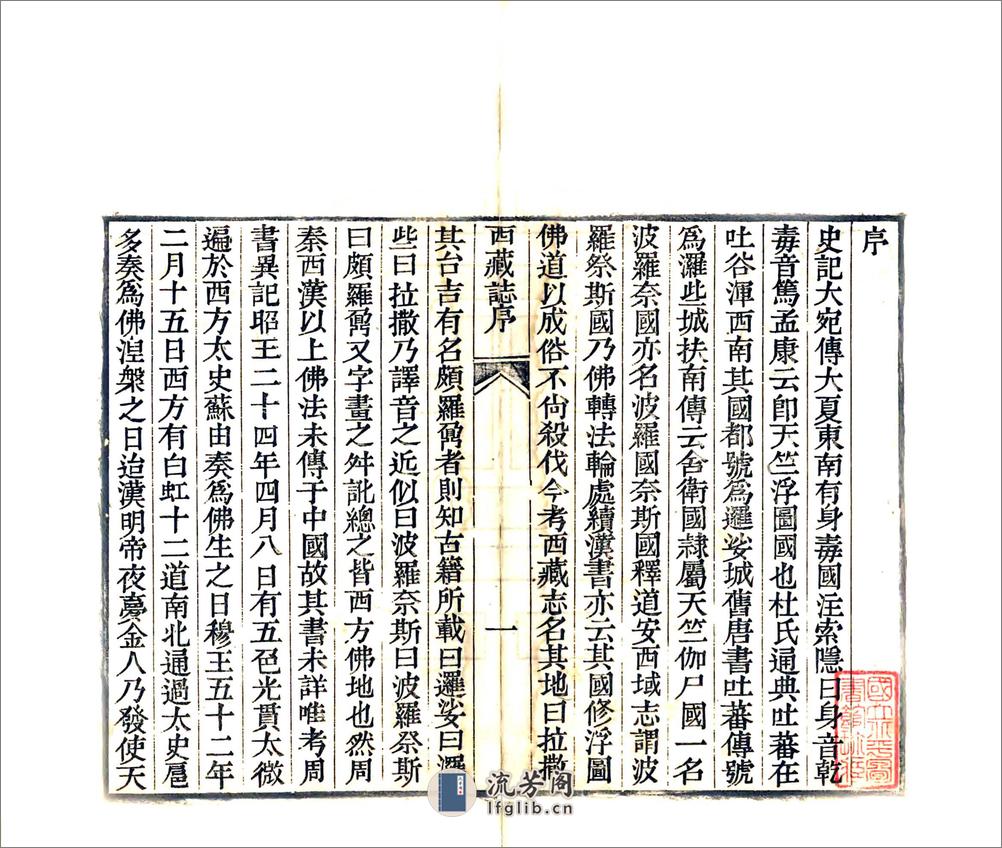 序
史記大宛傳大夏東南有身毒國注索隱曰身音乾
毒音篤孟康云卽天竺浮圖國也杜氏通典吐蕃在
吐谷渾西南其國都號爲邏娑城舊唐書吐蕃傳號
爲邏些城扶南傳云舍衛國隸屬天竺伽尸國一名
波羅奈國亦名波羅國奈斯國釋道安西域志謂波
羅祭斯國乃佛轉法輪處續漢書亦云其國修浮圖
佛道以成俗不尙殺伐今考西藏志名其地曰拉撒
西藏誌序
一
其台吉有名頗羅鼐者則知古籍所載曰邏娑曰邏
些曰拉撒乃譯音之近似曰波羅奈斯曰波羅祭斯
曰頗羅鼐又字畫之舛訛總之皆西方佛地也然周
秦西漢以上佛法未傳于中國故其書未詳唯考周
書異記昭王二十四年四月八日有五色光貫太微
遍於西方太史蘇由奏爲佛生之日穆王五十二年
二月十五日西方有白虹十二道南北通過太史扈
多奏爲佛湼槃之日迨漢明帝夜夢金人乃發使天
國立北平圖書館收藏
流芳阁
lfglib.cn